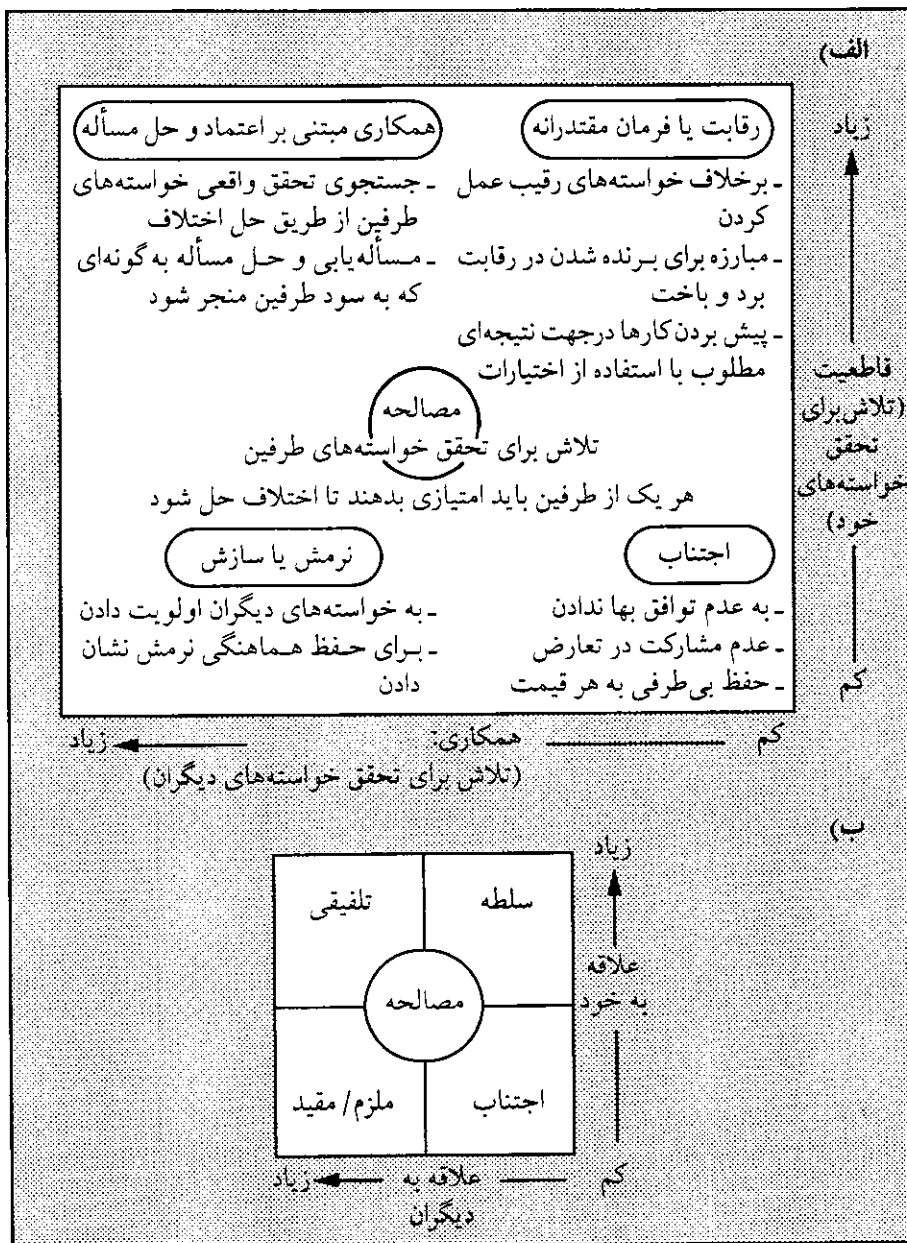 الف)
زیاد
رقابت یا فرمان مقتدرانه
ـ برخلاف خواسته‌های رقیب عمل
کردن
ـ مبارزه برای برنده شدن در رقابت
برد و باخت
ـ پیش بردن کارها درجهت نتیجه‌ای
مطلوب با استفاده از اختیارات
همکاری مبتنی بر اعتماد و حل مسأله
ـ جستجوی تحقق واقعی خواسته‌های
طرفین از طریق حل اختلاف
ـ مسأله‌یابی و حل مسأله به گونه‌ای
که به سود طرفین منجر شود
قاطعیت
(تلاش برای
تحقق
خواسته‌های
خود)
مصالحه
تلاش برای تحقق خواسته‌های طرفین
هر یک از طرفین باید امتیازی بدهند تا اختلاف حل شود
اجتناب
ـ به عدم توافق بها ندادن
ـ عدم مشارکت در تعارض
ـ حفظ بی‌طرفی به هر قیمت
نرمش یا سازش
ـ به خواسته‌های دیگران اولویت دادن
ـ برای حفظ هماهنگی نرمش نشان
دادن
کم
کم
همکاری:
زیاد
(تلاش برای تحقق خواسته‌های دیگران)
ب)
زیاد
سلطه
تلفیقی
علاقه
به خود
مصالحه
اجتناب
ملزم/ مقید
کم
علاقه به
زیاد
دیگران